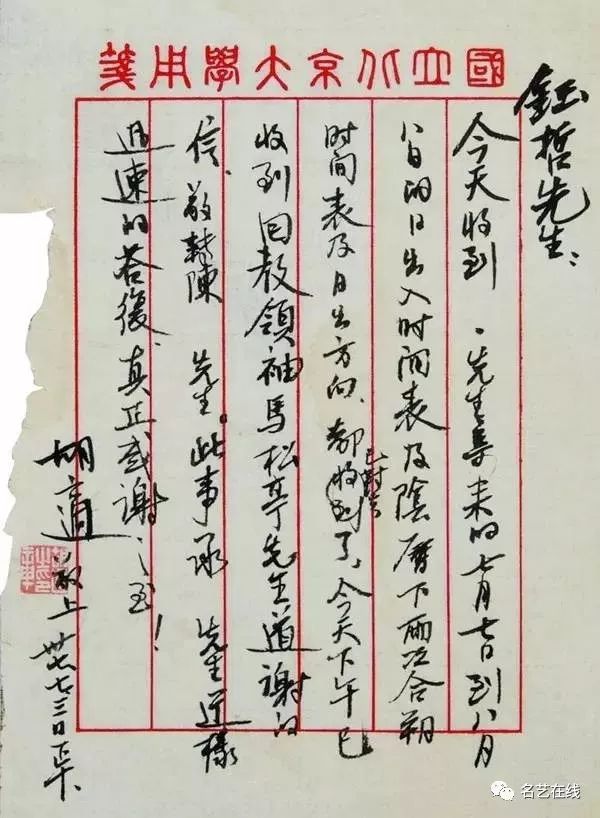 國立北京大學用箋
鈺哲先生：
今天收到 先生寄来的七月七日到八月
八日的日出入时间表及陰曆下兩次合朔
时间表及日出方向、都收到了。今天下午已
收到回教領袖馬松亭先生道謝的
信、敬转陳 先生。此事承 先生这樣
迅速的答復、真正感謝之至！
胡適敬上 卅七、七、三日下午、
名艺在线